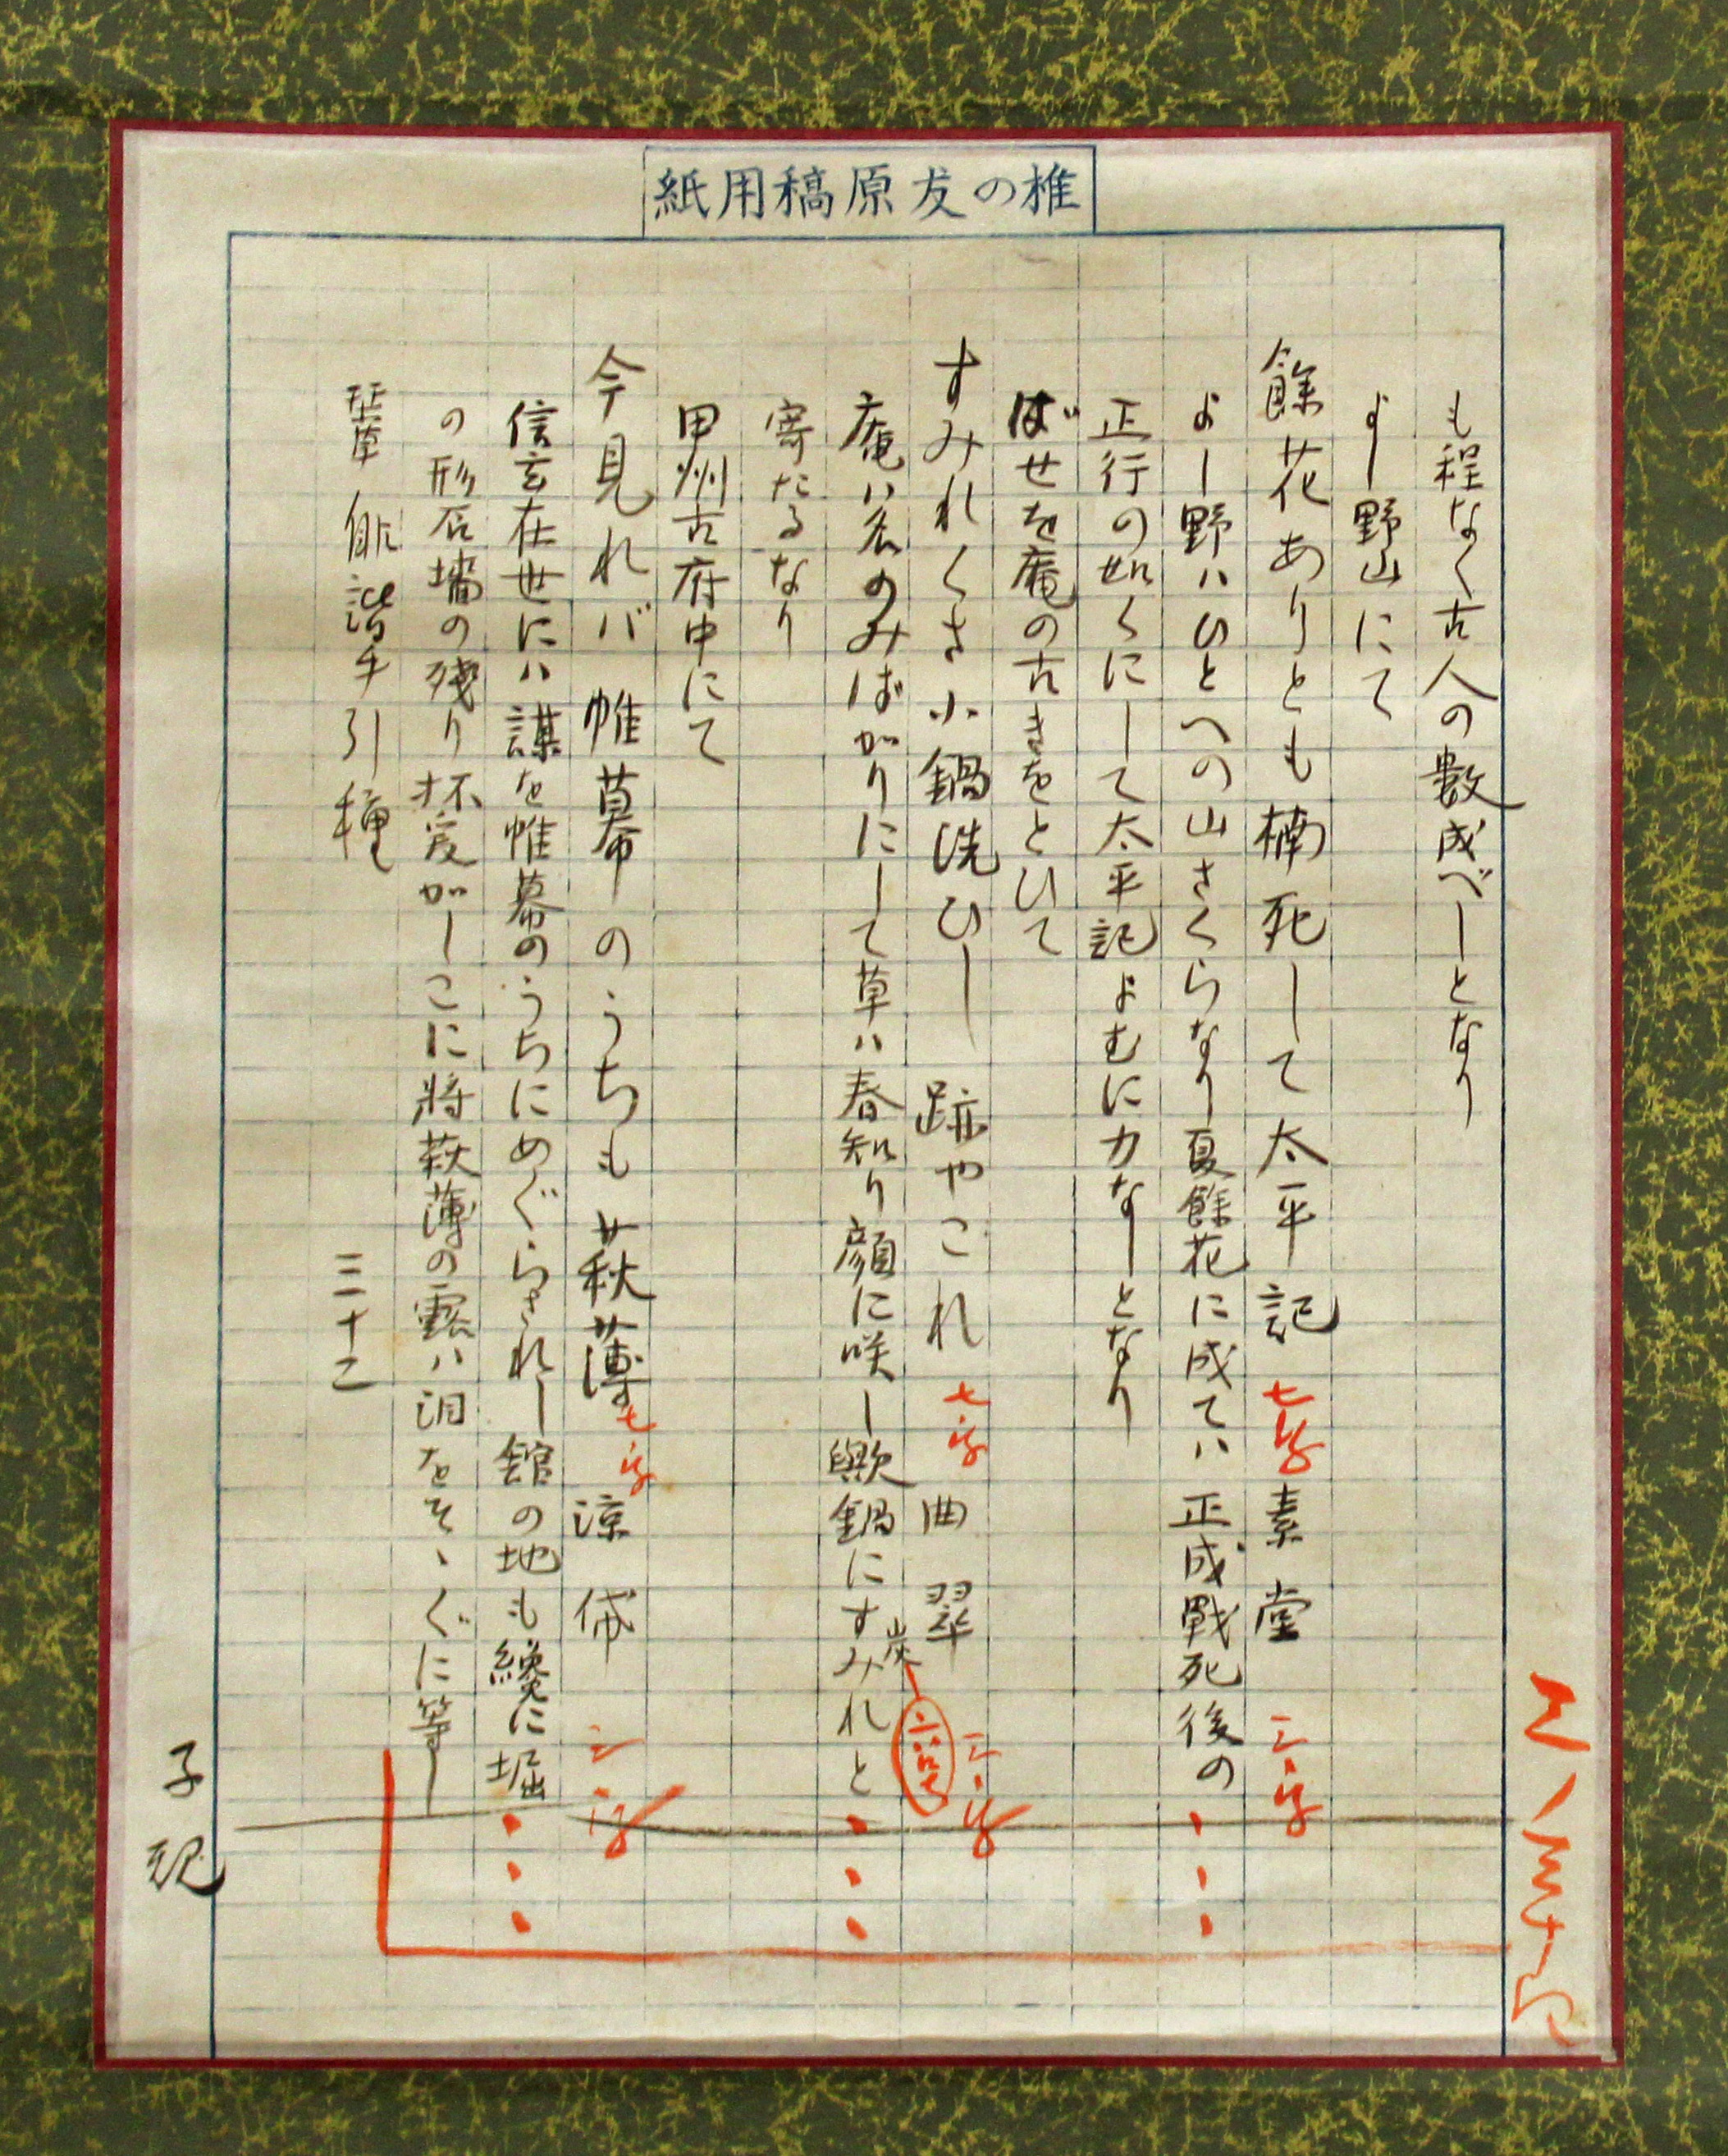 椎の友原稿用紙
も程なく古人の数成べしとなり
よし野山にて
餘花ありとも楠死して太平記 七字 素堂 二字
よし野ハひとへの山さくらなり夏餘花に成てハ正成戰死後の
正行の如くにして太平記よむに力なしとなり
ばせを庵の古きをとひて
すみれくさ小鍋洗ひし跡やこれ 七字 曲翠 二字
炭
庵ハ名のみばかりにして草ハ春知り顔に咲し歟鍋にすみれと
寄たるなり
甲州古府中にて
今見れバ帷幕のうちも萩薄 七字 涼帒 二字
信玄在世にハ謀を帷幕のうちにめぐらされし舘の地も纔に堀
の形石墻の残り杯爰かしこに將萩薄の露ハ泪をそゝぐに等し
俳諧手引種
三十二
子規